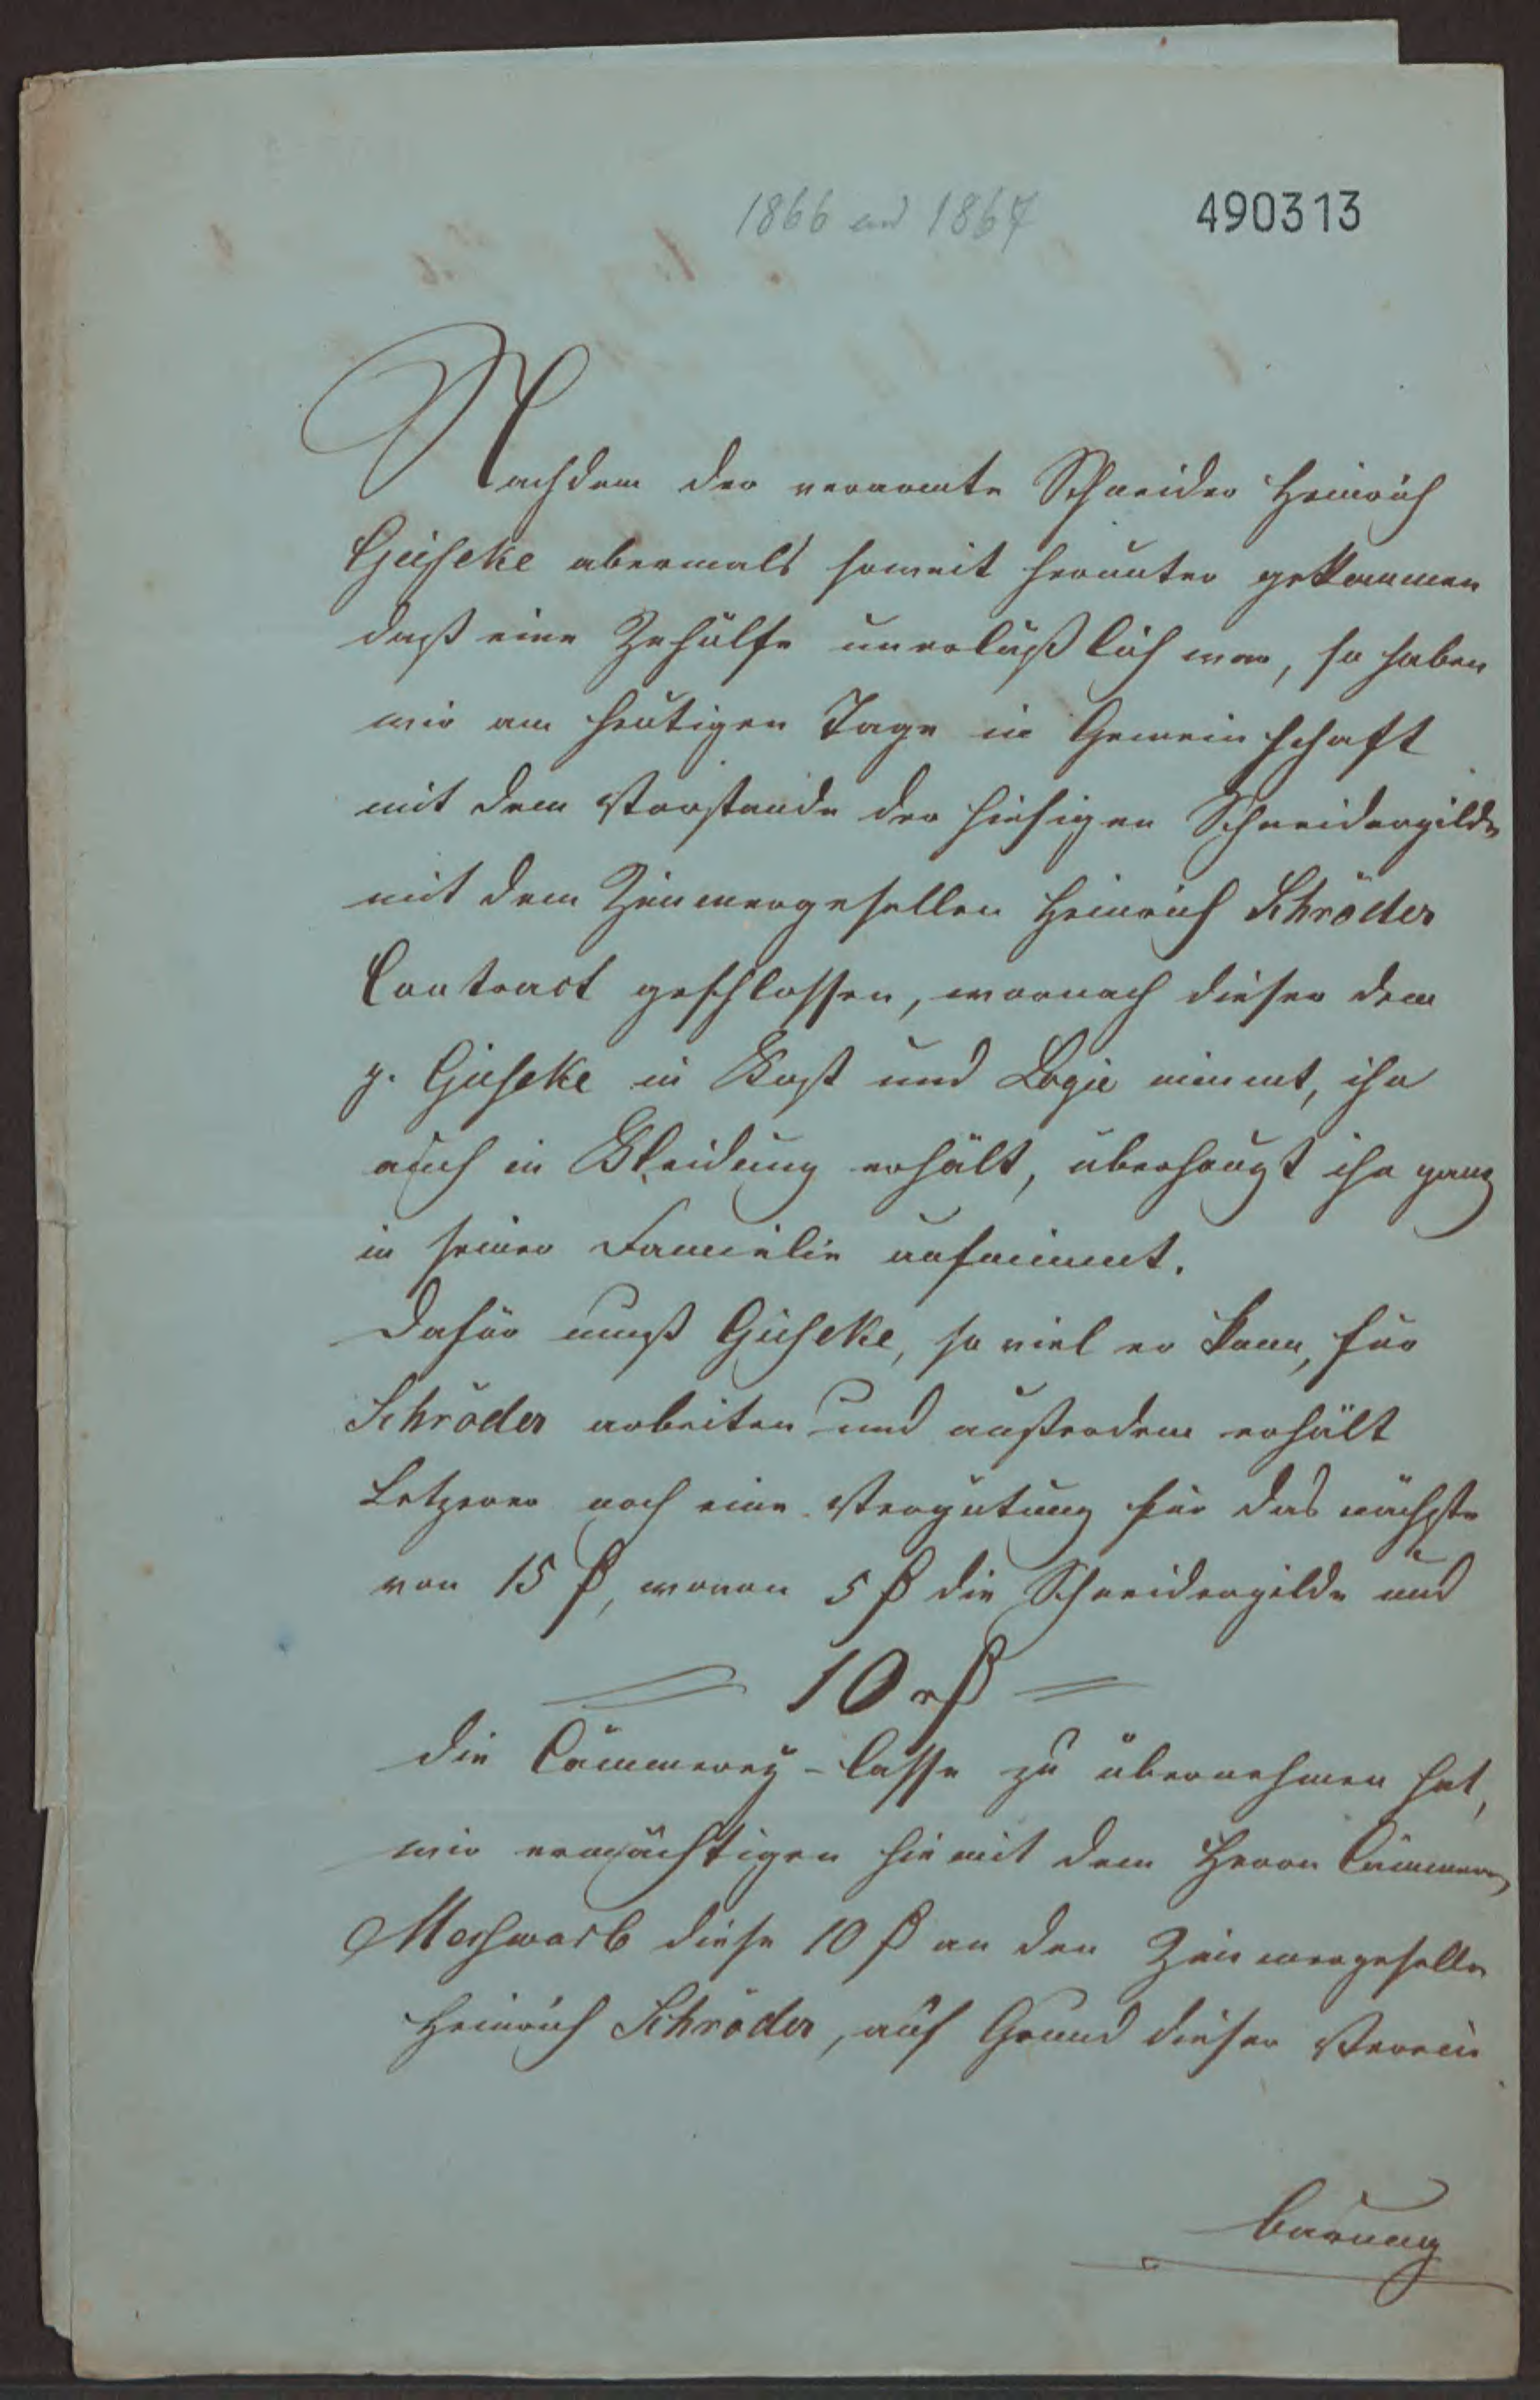 1866 und 1867
490313
Nachdem der verarmte Schneider Heinrich
Gieseke abermals soweit herunter gekommen
daß eine Zehülfe unerläßlich war, so haben
wir am heutigen Tage in Gemeinschaft
mit dem Vorstande der hiesigen Schneidergilde
mit dem Zimmergesellen Heinrich Schröder
Contract geschlossen, wornach dieser dem
p. Gieseke in Kost und Logie nimmt, ihn
auch in Kleidung erhält, überhaupt ihn ganz
in seiner Familie aufnimmt.
Dafür muß Gieseke, so viel er kann, für
Schröder arbeiten und außerdem erhält
Letzerer noch eine Vergütung für das nächste
von 15 ₰, wovon 5 ₰ die Schneidergilde und
10 r₰
die Cämmerey-Casse zu übernehmen hat,
wir ermächtigen hiemit dem Herrn Cämmerer
diese 10 ₰ an den Zimmergesellen
Heinrich Schröder, auf Grund dieser Verein
barung